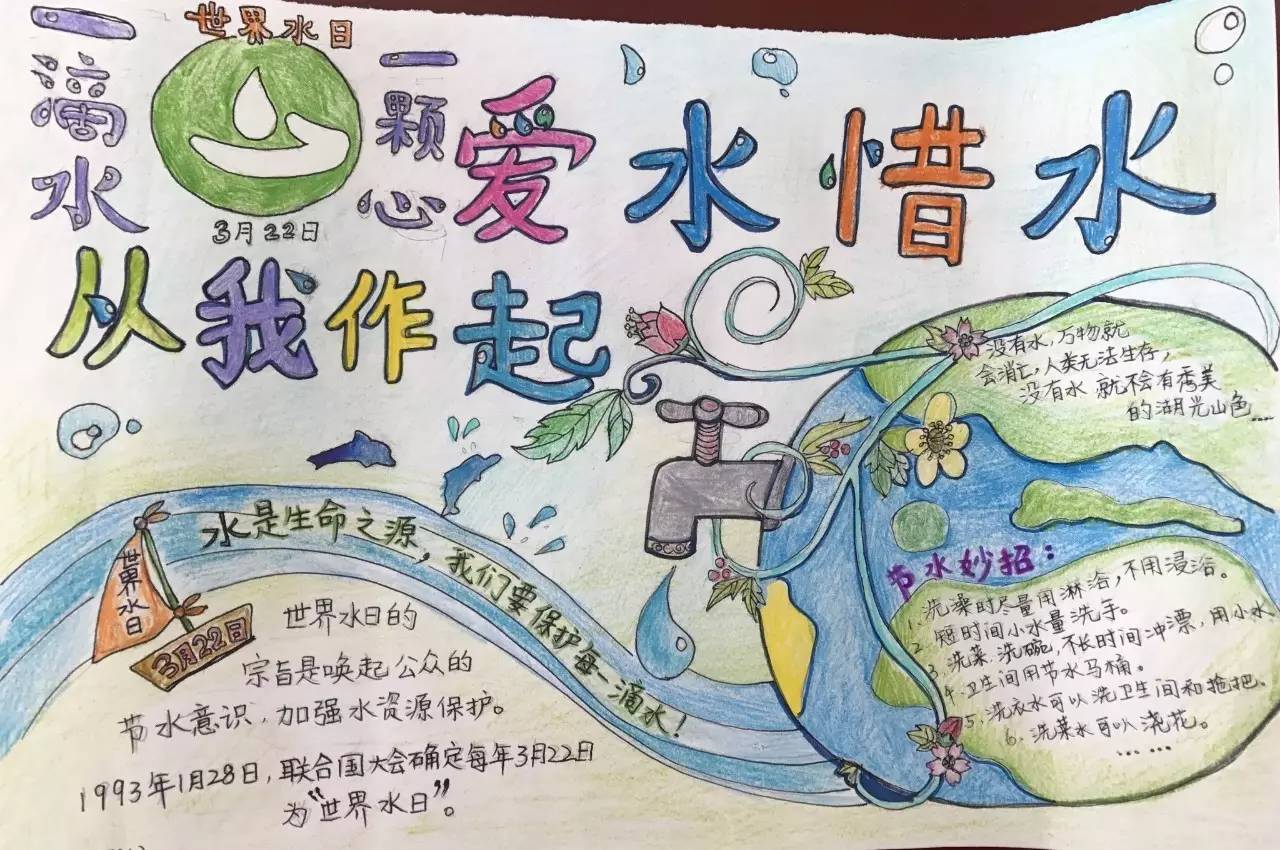 世界水日
一滴水
一颗心
3月22日
爱水惜水
从我作起
没有水，万物就
会消亡，人类无法生存，
没有水 就不会有秀美
的湖光山色……
水是生命之源，我们要保护每一滴水！
世界水日
3月22日
世界水日的
宗旨是唤起公众的
节水意识，加强水资源保护。
1993年1月28日，联合国大会确定每年3月22日
为“世界水日”。
节水妙招：
1. 洗澡时尽量用淋浴，不用浸浴。
2. 短时间小水量洗手。
3. 洗菜、洗碗，不长时间冲漂，用小水
4. 卫生间用节水马桶。
5. 洗衣水可以洗卫生间和拖把。
6. 洗菜水可以浇花。
……